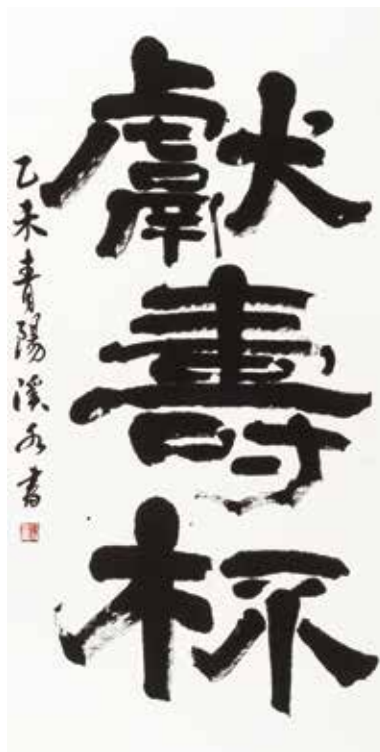 獻壽杯
乙未青陽溪水書